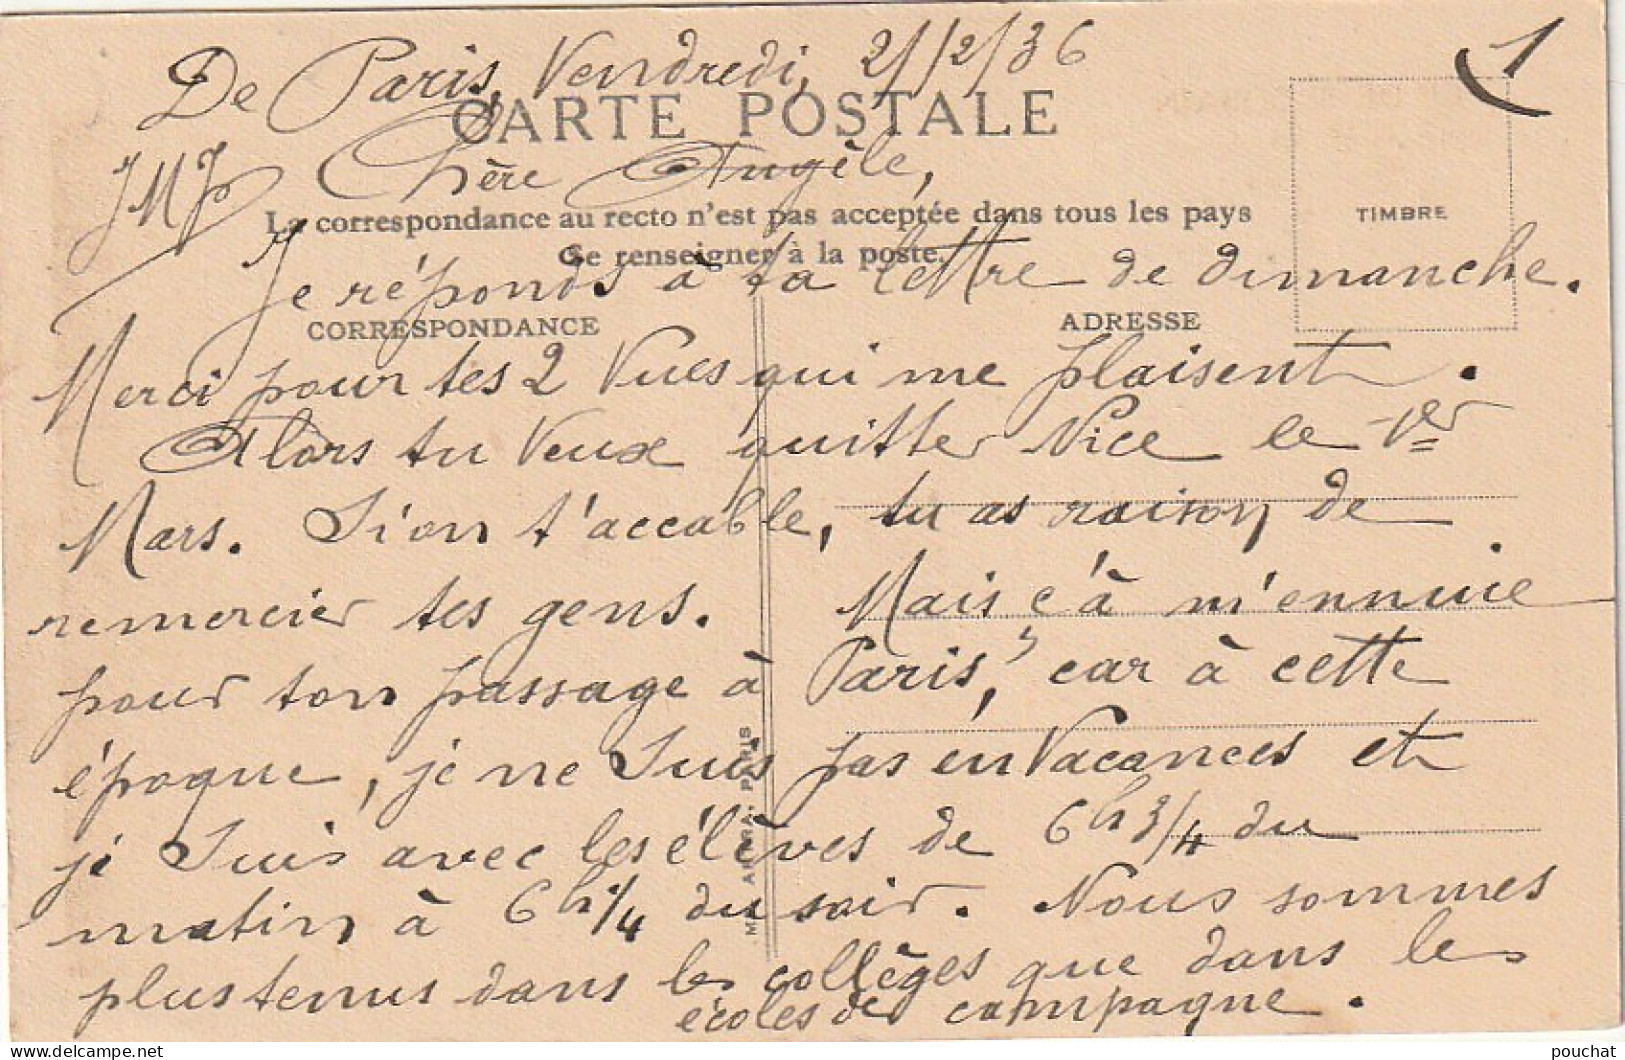 1
De Paris, Vendredi, 21/2/36
CARTE POSTALE
JMJ
Chère Angèle,
La correspondance au recto n'est pas acceptée dans tous les pays
Se renseigner à la poste.
TIMBRE
Je réponds à ta lettre de dimanche.
CORRESPONDANCE
ADRESSE
Merci pour tes 2 Vues qui me plaisent.
Alors tu Veux quitter Nice le 1er
Mars. Si on t'accable, tu as raison de
remercier tes gens. Mais ç'à m'ennuie
pour ton passage à Paris, car à cette
époque, je ne Suis pas en Vacances et
je Suis avec les élèves de 6h 3/4 du
matin à 6h 1/4 du soir. Nous sommes
plus tenus dans les collèges que dans les
écoles de campagne.
PARIS
pouchat